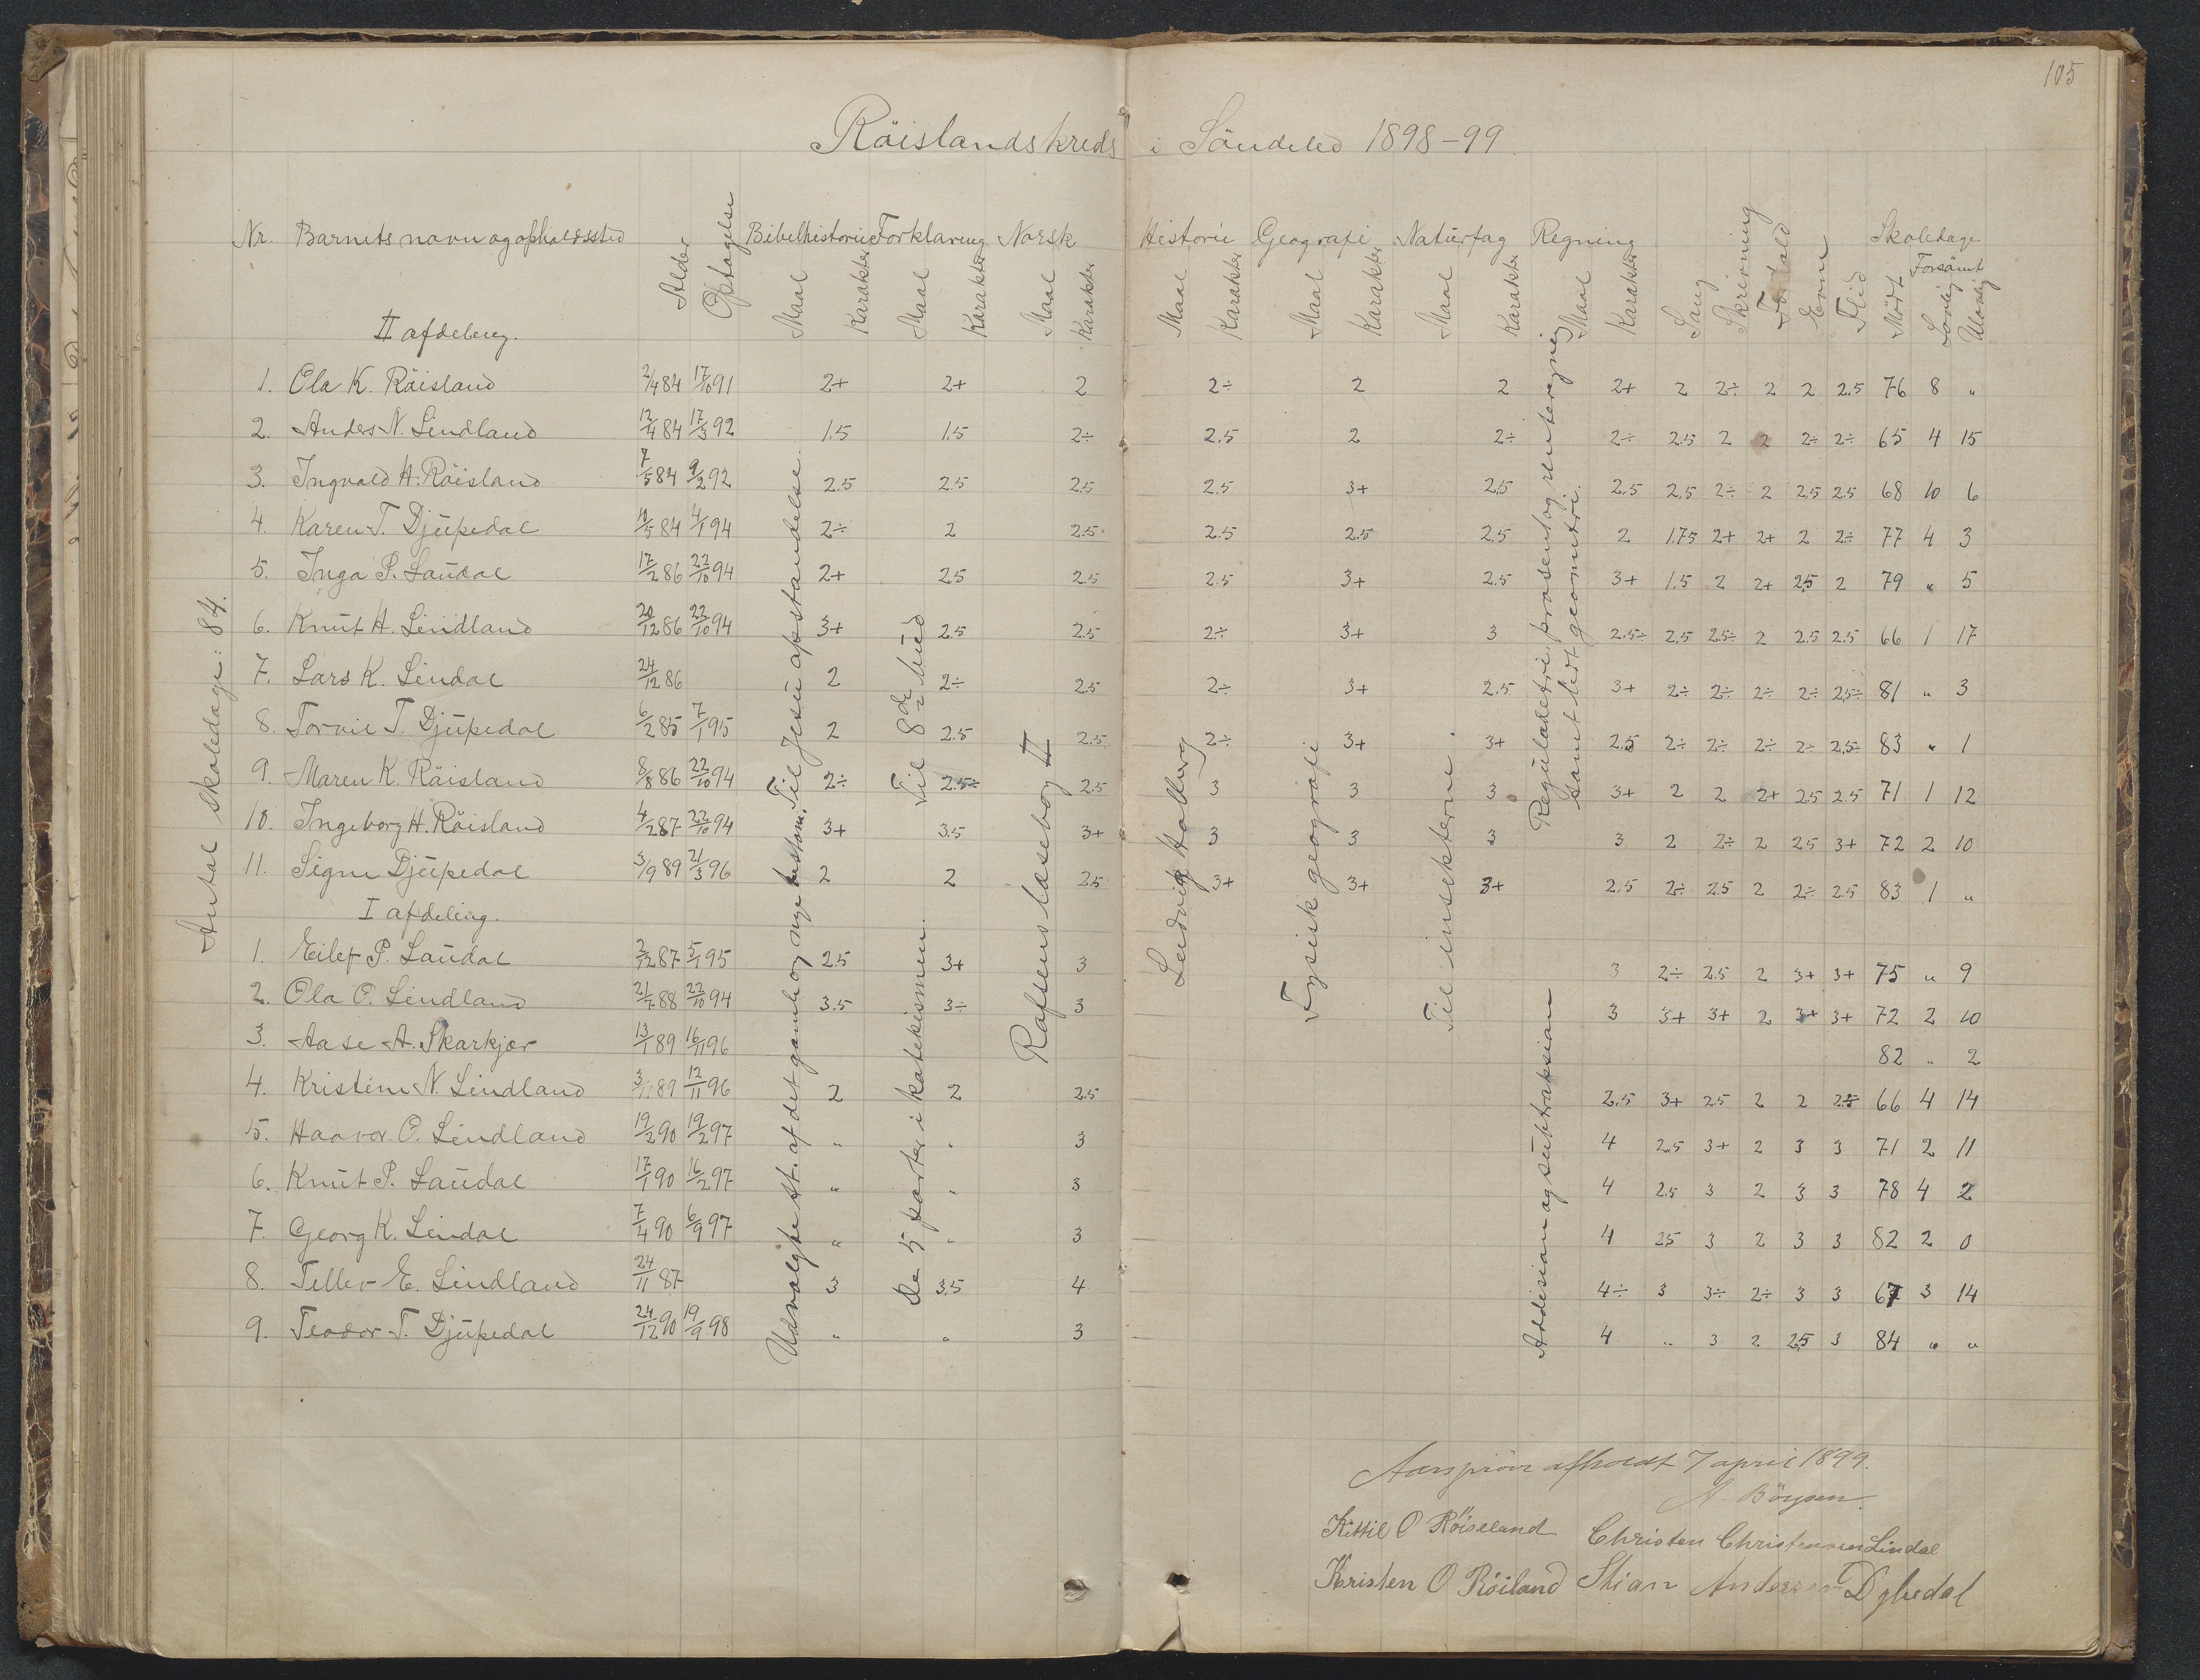 105
Räislandskreds i Söndeled 1898-99.
Nr. Barnets navn og opholdssted Alder Optagelse Bibelhistorie Forklaring Norsk Historie Geografi Naturfag Regning Sang Skrivning Forhold Evne Flid Skoledage
Maal Karakter Maal Karakter Maal Karakter Maal Karakter Maal Karakter Maal Karakter Maal Karakter Mødt Forsömt Lovlig Ulovlig
II afdeling.
1. Ola K. Räisland 2/4 84 17/10 91 2+ 2+ 2 2÷ 2 2 2+ 2 2÷ 2 2 2.5 76 8 "
2. Anders N. Lindland 12/4 84 17/3 92 1.5 1.5 2÷ 2.5 2 2÷ 2÷ 2.5 2 2 2÷ 2÷ 65 4 15
3. Ingvald H. Räisland 7/5 84 9/2 92 2.5 2.5 2.5 2.5 3+ 2.5 2.5 2.5 2÷ 2 2.5 2.5 68 10 6
4. Karen T. Djupedal 11/5 84 4/1 94 2÷ 2 2.5 2.5 2.5 2.5 2 1.75 2+ 2+ 2 2÷ 77 4 3
5. Inga P. Laudal 17/2 86 22/10 94 2+ 2.5 2.5 2.5 3+ 2.5 3+ 1.5 2 2+ 2.5 2 79 " 5
6. Knut H. Lindland 20/12 86 22/10 94 3+ 2.5 2.5 2÷ 3+ 3 2.5÷ 2.5 2.5÷ 2 2.5 2.5 66 1 17
7. Lars K. Lindal 24/12 86 2 2÷ 2.5 2÷ 3+ 2.5 3+ 2÷ 2÷ 2÷ 2÷ 2.5÷ 81 " 3
8. Torvil T. Djupedal 6/2 85 7/1 95 2 2.5 2.5 2÷ 3+ 3+ 2.5 2÷ 2÷ 2÷ 2÷ 2.5÷ 83 " 1
9. Maren K. Räisland 8/8 86 22/10 94 2÷ 2.5÷ 2.5 3 3 3 3+ 2 2 2+ 2.5 2.5 71 1 12
10. Ingeborg H. Räisland 4/2 87 22/10 94 3+ 3.5 3+ 3 3 3 3 2 2÷ 2 2.5 3+ 72 2 10
11. Signe Djupedal 3/9 89 21/3 96 2 2 2.5 3+ 3+ 3+ 2.5 2÷ 2.5 2 2÷ 2.5 83 1 "
I afdeling.
1. Eilef P. Laudal 2/12 87 5/1 95 2.5 3+ 3 3 2÷ 2.5 2 3+ 3+ 75 " 9
2. Ola O. Lindland 21/7 88 22/10 94 3.5 3÷ 3 3 3+ 3+ 2 3+ 3+ 72 2 10
3. Aase A. Skarkjær 13/1 89 16/11 96 82 " 2
4. Kristine N. Lindland 3/11 89 12/11 96 2 2 2.5 2.5 3+ 2.5 2 2 2.5 66 4 14
5. Haavor O. Lindland 19/2 90 19/2 97 " " 3 4 2.5 3+ 2 3 3 71 2 11
6. Knut P. Laudal 17/1 90 16/2 97 " " 3 4 2.5 3 2 3 3 78 4 2
7. Georg K. Lindal 7/4 90 6/9 97 " " 3 4 2.5 3 2 3 3 82 2 0
8. Tellev E. Lindland 24/11 87 3 3.5 4 4÷ 3 3÷ 2÷ 3 3 67 3 14
9. Teodor T. Djupedal 24/12 90 19/9 98 " " 3 4 " 3 2 2.5 3 84 " "
Antal skoledage: 84.
Udvalgte st. af det gamle og nye testam. Til Jesu opstandelse.
De 5 parter i katekismen. Til 8de bud
Rolfsens læsebog II
Ludvig Holberg
Fysisk geografi
Til insekterne.
Addision og subtraksion
Reguladetri, prosent og renteregning
samt lidt geometri.
Aarsprøve afholdt 7 april 1899.
A. Böysen.
Kittil O Röiseland Christen Christensen Lindal
Kristen O Röiland Stian Andersen Dybedal